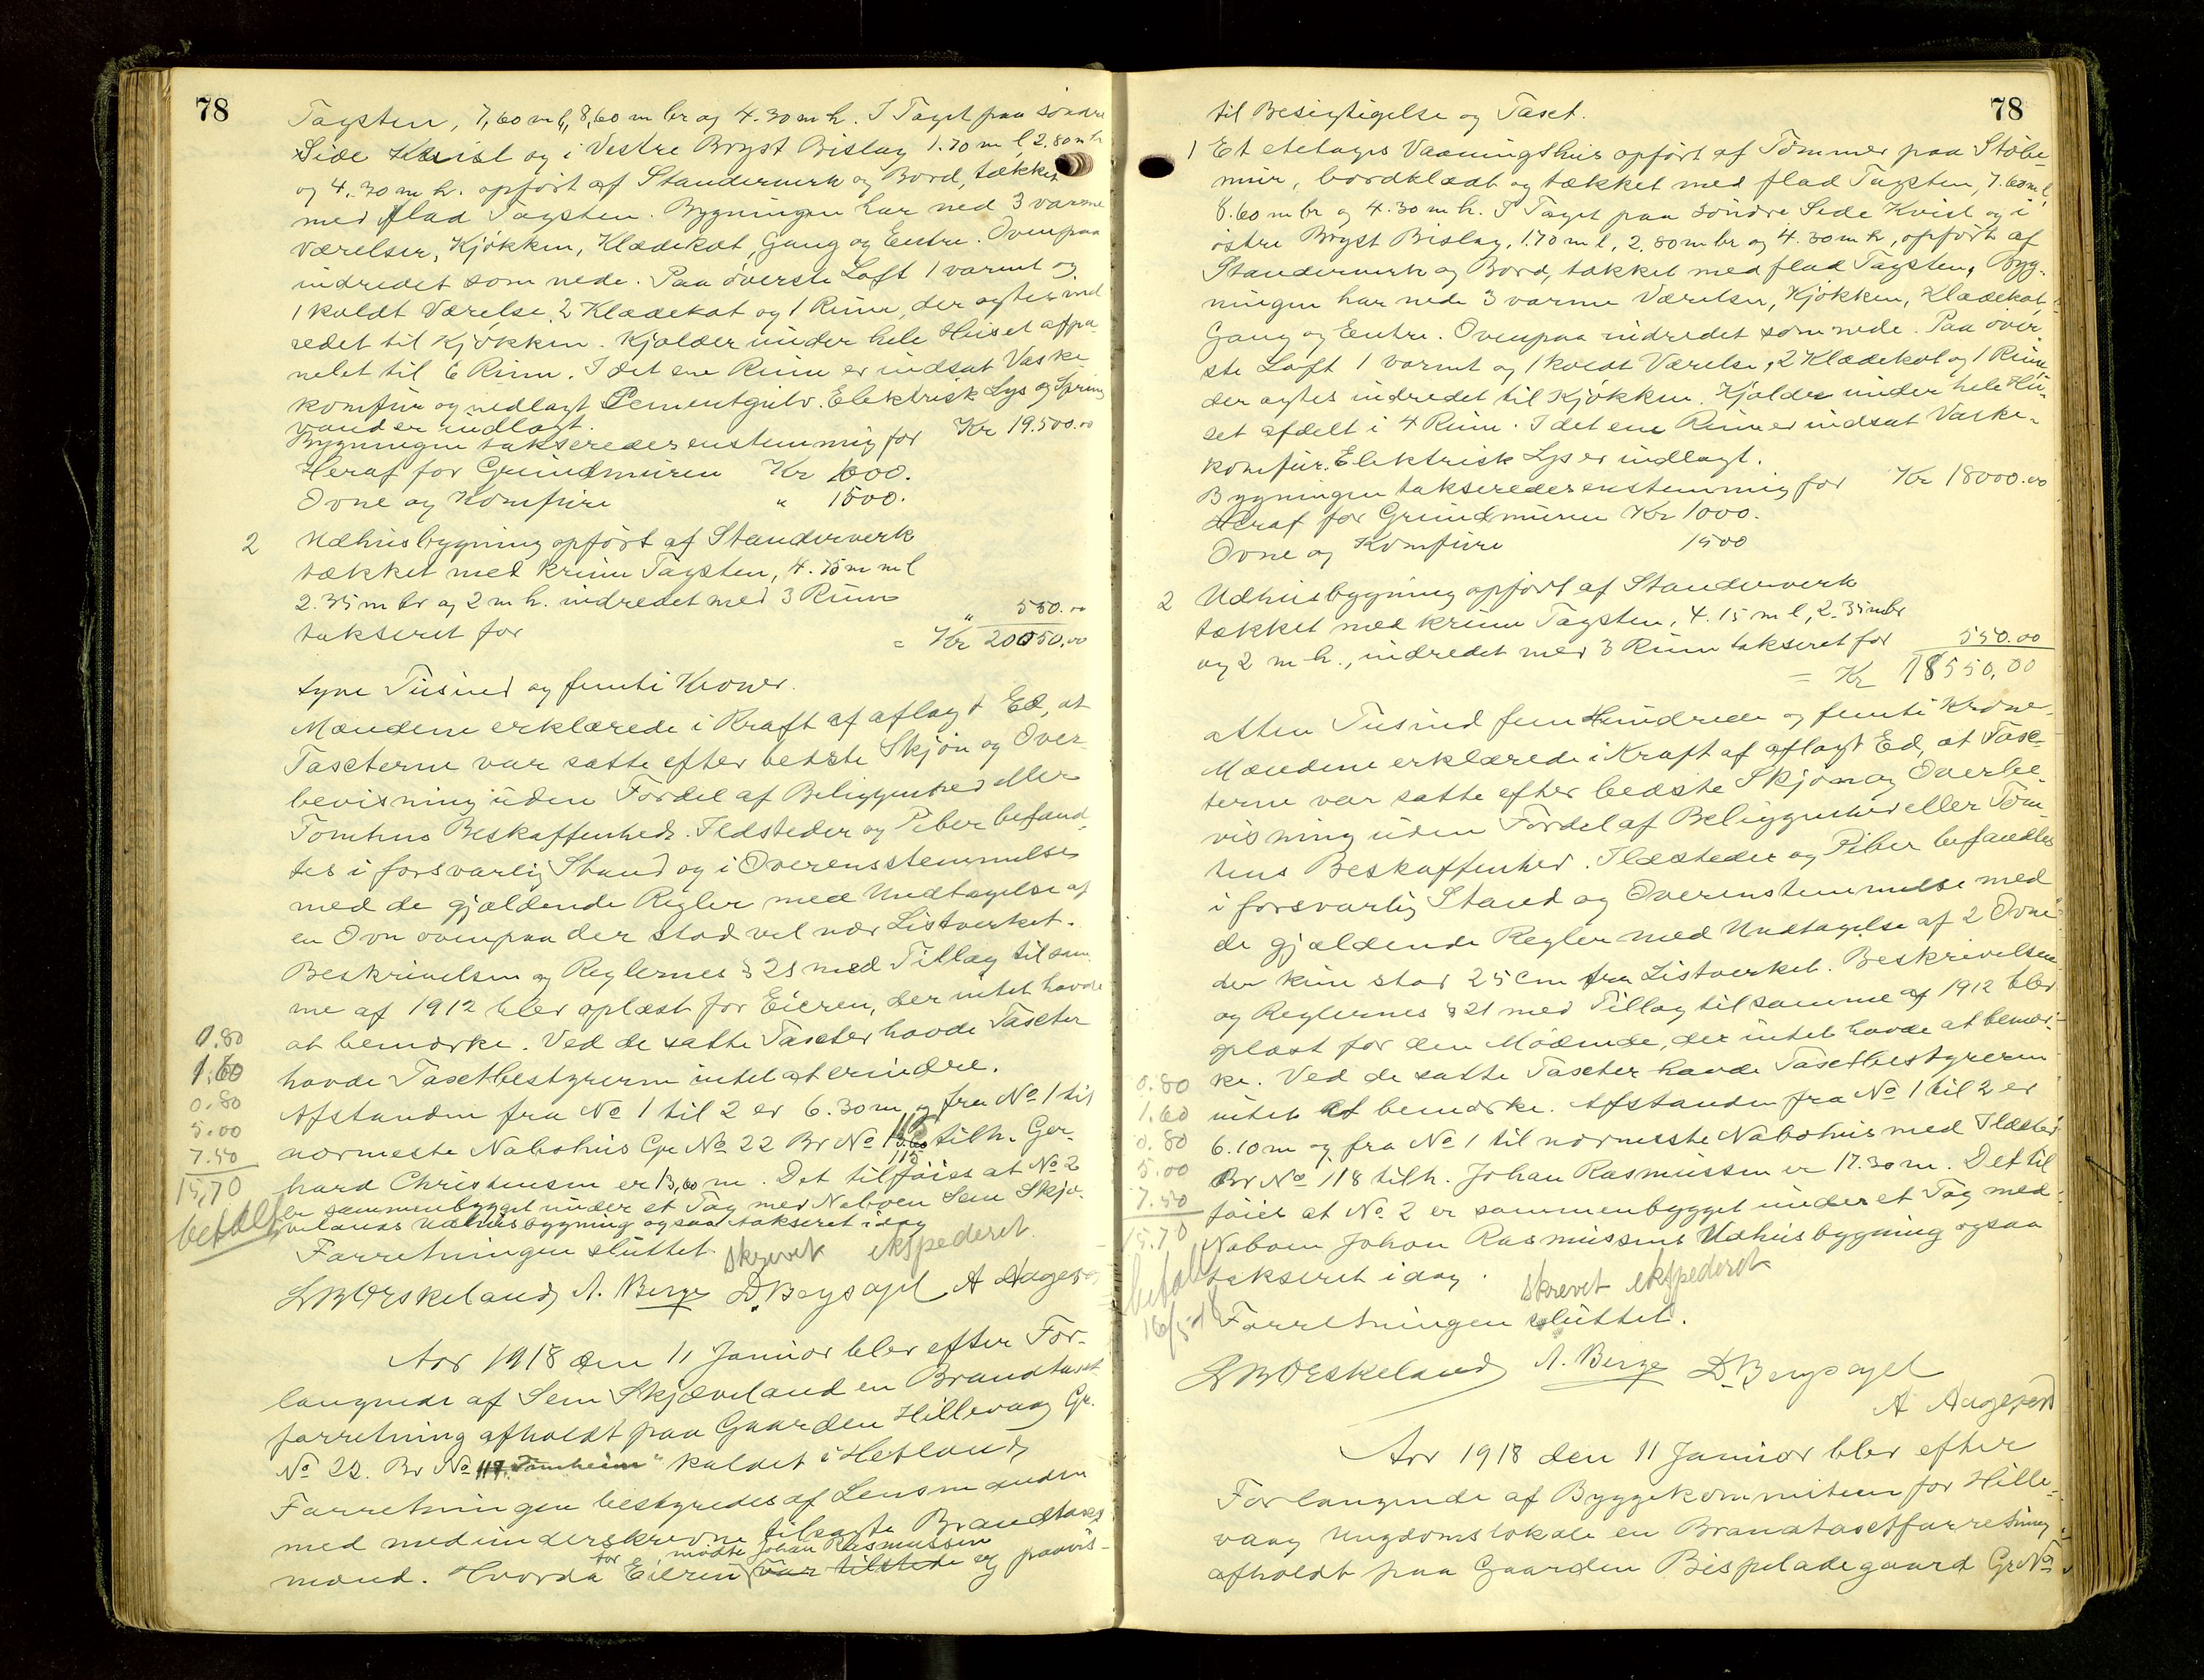 78
Tagsten, 7,60 m l, 8,60 m br og 4.30 m h. I Taget paa søndre
Side Kvist og i Vestre Bryst Bislag 1.70 m l, 2.80 m br
og 4.30 m h. opført af Standerverk og Bord, tækket
med flad Tagsten. Bygningen har ned 3 varme
Værelser, Kjøkken, Klædekot, Gang og Entre. Ovenpaa
indredet som nede. Paa øverste Loft 1 varmt og
1 koldt Værelse, 2 Klædekot og 1 Rum, der agtes ind
redet til Kjøkken. Kjælder under hele Huset afpa-
nelet til 6 Rum. I det ene Rum er indsat Vaske
komfur og nedlagt Cementgulv. Elektrisk Lys og Spring
vand er indlagt.
Bygningen takseredes enstemmig for Kr 19.500.00
Heraf for Grundmuren Kr 1000.
Ovne og Komfure " 1500.
2 Udhusbygning opført af Standerverk
tækket med krum Tagsten, 4.15 m m l
2.35 m br og 2 m h. indredet med 3 Rum
takseret for " 550.00
= Kr 20050.00
tyve Tusind og femti Kroner.
Mændene erklærede i Kraft af aflagt Ed, at
Taxterne var satte efter bedste Skjøn og Over-
bevisning uden Fordel af Beliggenhed eller
Tomtens Beskaffenhed. Ildsteder og Piber befand-
tes i forsvarlig Stand og i Overensstemmelse
med de gjældende Regler med Undtagelse af
en Ovn ovenpaa der stod vel nær Listverket.
Beskrivelsen og Reglernes § 21 med Tillæg til sam-
me af 1912 blev oplæst for Eieren, der intet havde
at bemærke. Ved de satte Taxter havde Taxter
havde Taxtbestyreren intet at erindre.
Afstanden fra No 1 til 2 er 6.30 m og fra No 1 til
nærmeste Nabohus Gr No 22 Br No 115 tilh. Ger-
hard Christensen er 13,60 m. Det tilføies at No 2
er sammenbygget under et Tag med Naboen Sem Skjæ-
velands Udhusbygning ogsaa takseret idag
Forretningen sluttet. skrevet ekspederet
0.80
1.60
0.80
5.00
7.50
15,70
betalt
LBOrskeland A. Berge D. Bergsagel A Aagesen
Aar 1918 den 11 Januar blev efter For-
langende af Sem Skjæveland en Brandtaxt
forretning afholdt paa Gaarden Hillevaag Gr.
No 22. Br No 117. "Tunheim" kaldet i Hetland
Forretningen bestyredes af Lensmanden
med medunderskrevne tilsagte Brandtaxt
mænd. Hvorda for Eieren mødte Johan Rasmussen var tilstede og paavis-
78
til Besigtigelse og Taxt.
1 Et etetages Vaaningshus opført af Tømmer paa Støbe-
mur, bordklædt og tækket med flad Tagsten, 7.60 m l,
8.60 m br og 4.30 m h. I Taget paa Søndre Side Kvist og i
østre Bryst Bislag, 1.70 m l, 2.80 m br og 4.30 m h, opført af
Standerverk og Bord, tækket med flad Tagsten. Byg-
ningen har nede 3 varme Værelser, Kjøkken, Klædekot,
Gang og Entre. Ovenpaa indredet som nede. Paa øver
ste Loft 1 varmt og 1 koldt Værelse, 2 Klædekot og 1 Rum,
der agtes indredet til Kjøkken. Kjælder under hele Hu-
set afdelt i 4 Rum. I det ene Rum er indsat Vaske-
komfur. Elektrisk Lys er indlagt.
Bygningen takseredes enstemmig for Kr 18000.00
Heraf for Grundmuren Kr 1000.
Ovne og Komfure 1500
2 Udhusbygning opført af Standerverk
tækket med krum Tagsten, 4.15 m l, 2.35 m br
og 2 m h., indredet med 3 Rum takseret for 550.00
= Kr 18550,00
atten Tusind fem Hundrede og femti Krone
Mændene erklærede i Kraft af aflagt Ed, at Tax-
terne var satte efter bedste Skjøn og Overbe-
visning uden Fordel af Beliggenhed eller Tom-
tens Beskaffenhed. Ildsteder og Piber befandtes
i forsvarlig Stand og Overenstemmelse med
de gjældende Regler med Undtagelse af 2 Ovne
der kun stod 25 cm fra Listverket. Beskrivelsen
og Reglernes § 21 med Tillæg til samme af 1912 blev
oplæst for den Mødende, der intet havde at bemær-
ke. Ved de satte Taxter havde Taxtbestyreren
intet at bemærke. Afstanden fra No 1 til 2 er
6.10 m og fra No 1 til nærmeste Nabohus med Ildsted
Br No 118 tilh. Johan Rasmussen er 17.30 m. Det til
føies at No. 2 er sammenbygget under et Tag med
Naboen Johan Rasmussens Udhusbygning ogsaa
takseret idag. skrevet ekspederet
0.80
1.60
0.80
5.00
7.50
15.70
betalt
16/5-18
Forretningen sluttet.
LBOrskeland A. Berge D. Bergsagel
A Aagesen
Aar 1918 den 11 Januar blev efter
Forlangende af Byggekommiteen for Hille-
vaag Ungdomslokale en Brandtaxtforretning
afholdt paa Gaarden Bispeladegaard Gr No